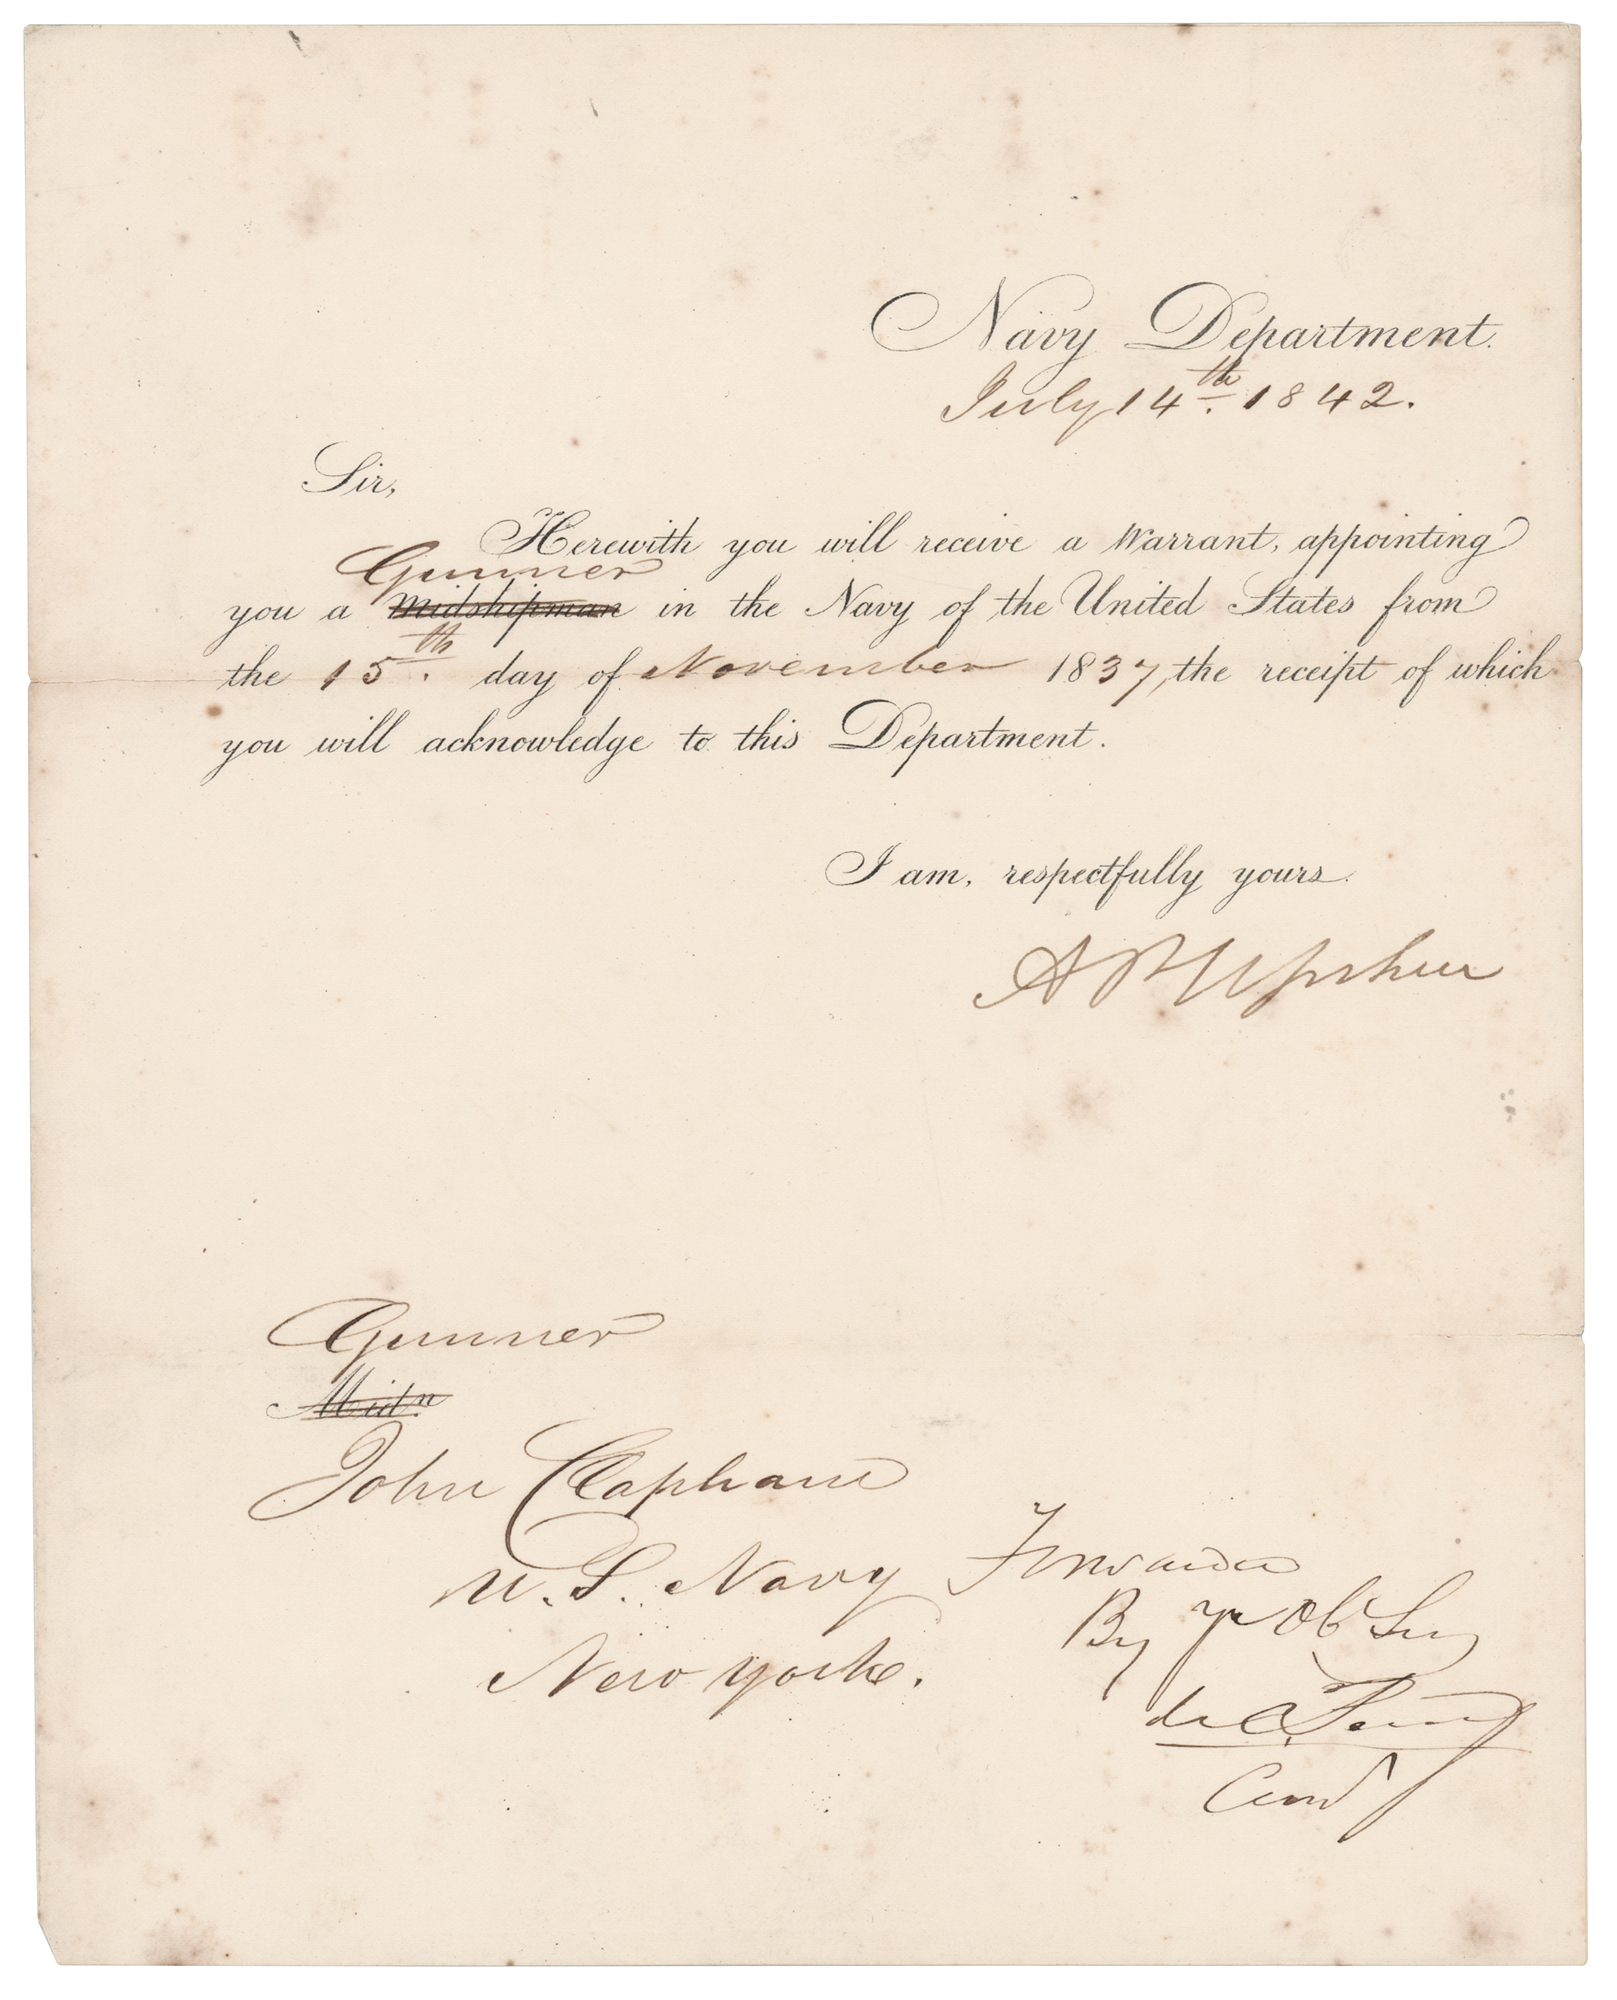 Navy Department.
July 14th. 1842.
Sir,
Herewith you will receive a Warrant, appointing
Gunner
you a Midshipman in the Navy of the United States from
the 15th. day of November 1837, the receipt of which
you will acknowledge to this Department.
I am, respectfully yours.
A P Upshur
Gunner
Midn
John Clapham
U. S. Navy
New York.
By yr Ob